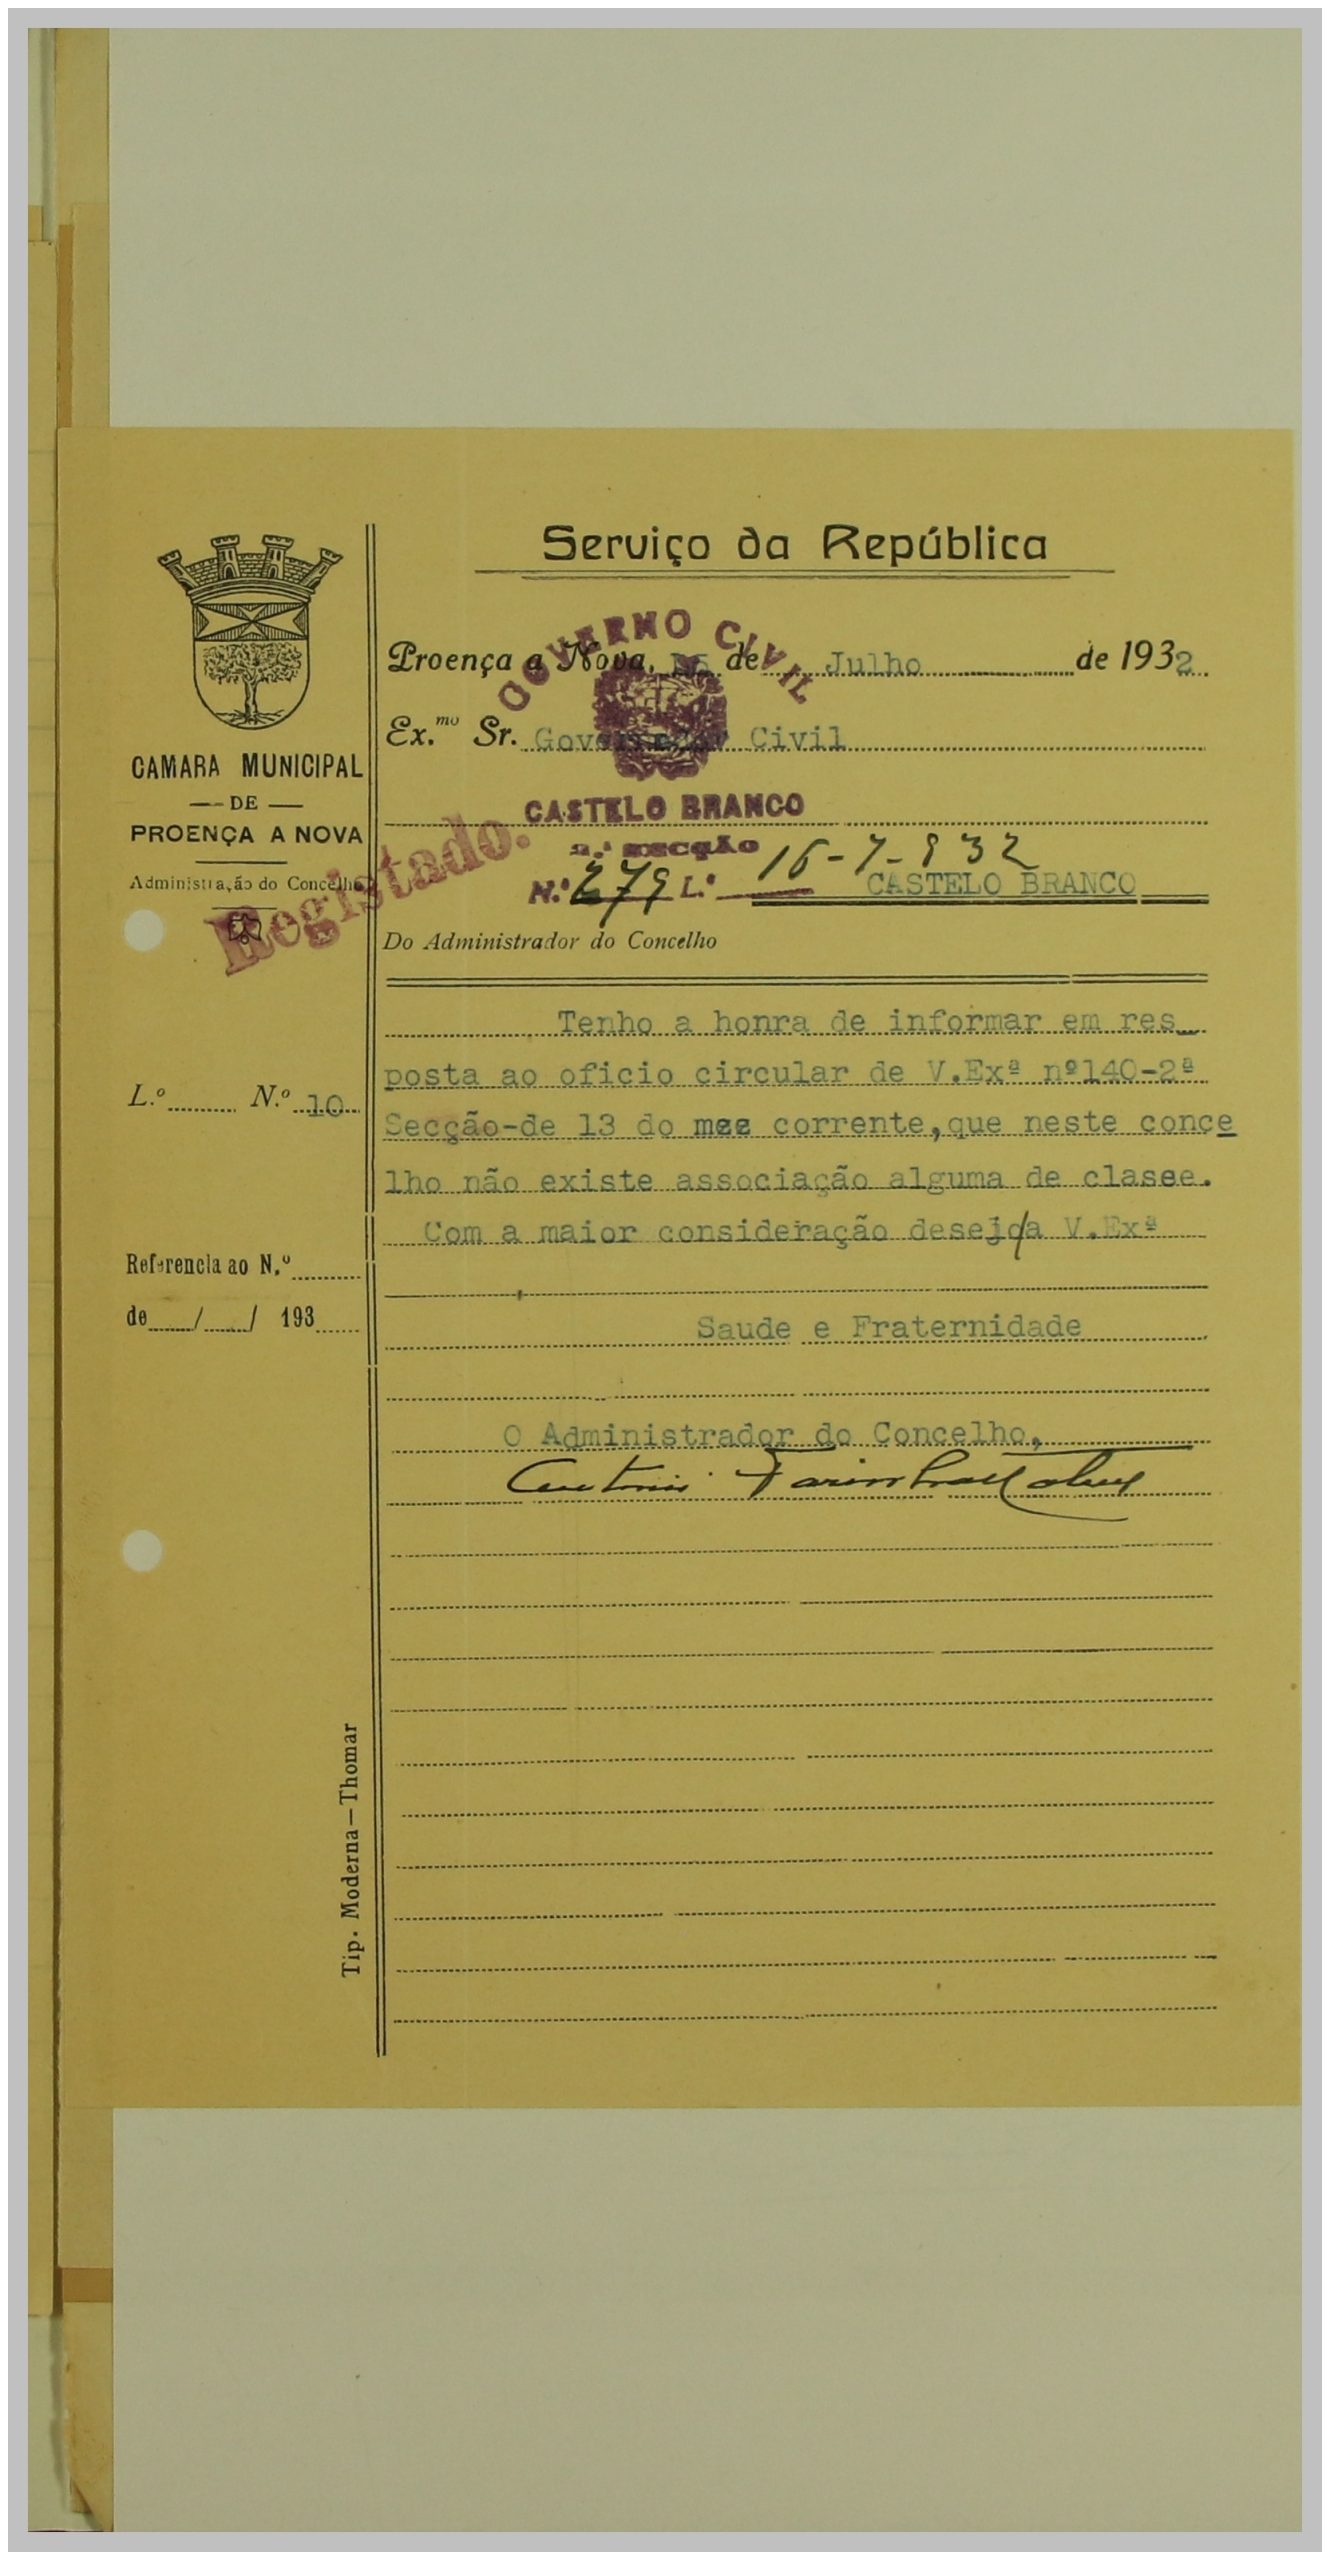 Serviço da República
Proença a Nova, de Julho de 1932
Ex.mo Sr. Governador Civil
CASTELO BRANCO
Do Administrador do Concelho
GOVERNO CIVIL
CASTELO BRANCO
2.ª secção
N.º 279 L.º 16-7-932
Registado.
CAMARA MUNICIPAL
— DE —
PROENÇA A NOVA
Administração do Concelho
L.º N.º 10
Referencia ao N.º
de / / 193
Tenho a honra de informar em res_
posta ao oficio circular de V.Exª nº140-2ª
Secção-de 13 do mez corrente,que neste conce
lho não existe associação alguma de classe.
Com a maior consideração desejo a V.Exª
Saude e Fraternidade
O Administrador do Concelho,
Tip. Moderna—Thomar